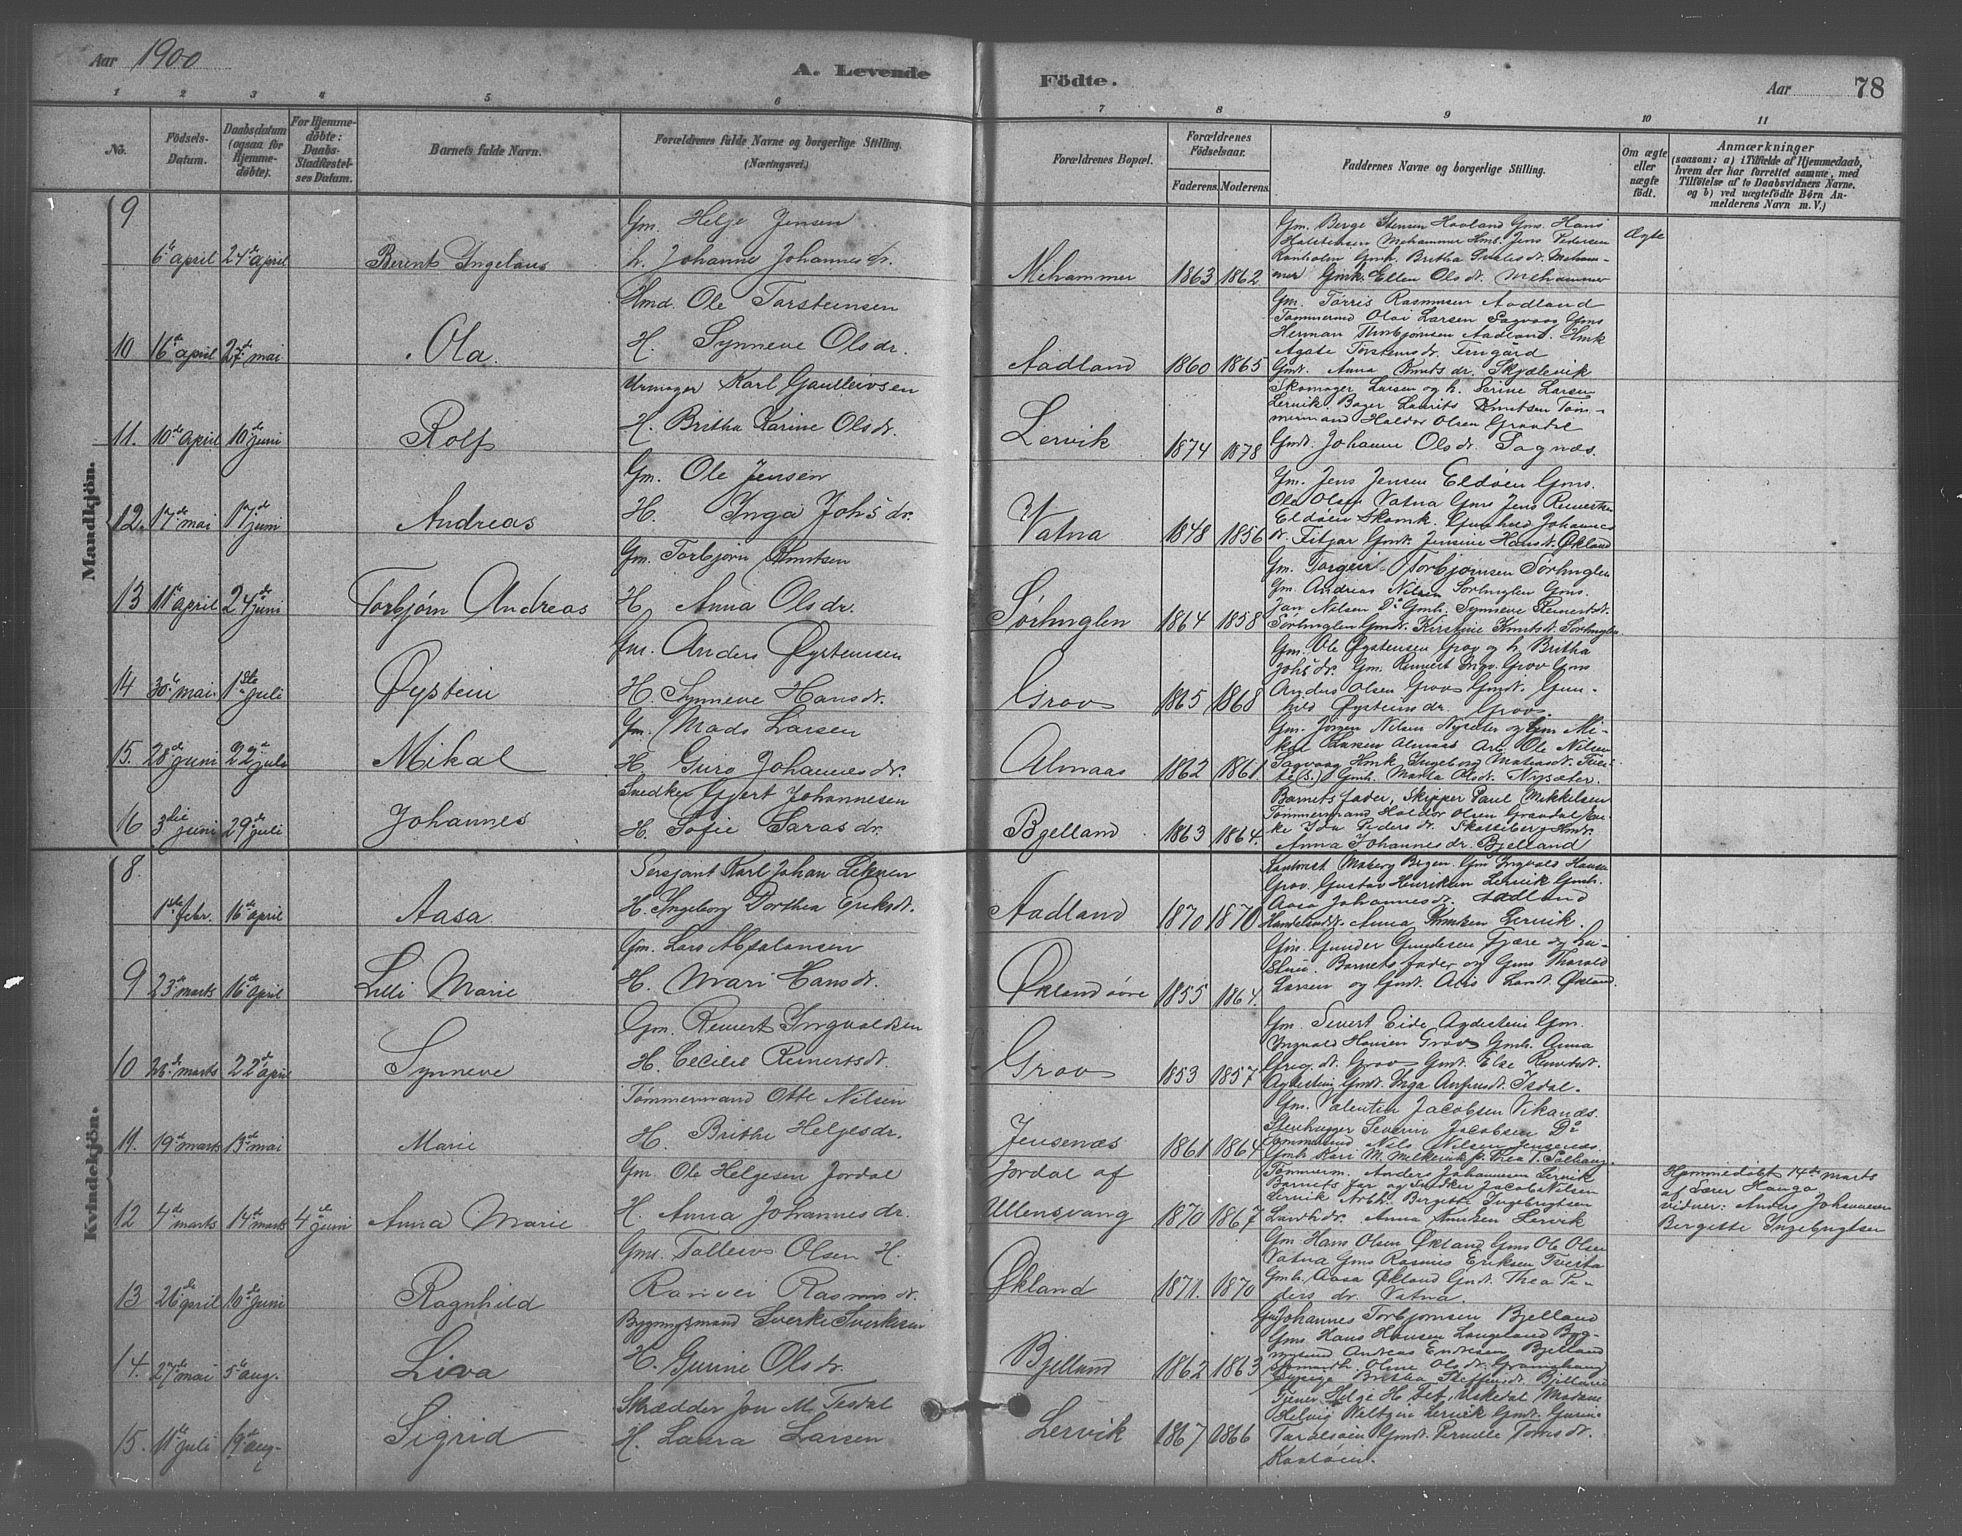 Aar 1900
A. Levende Födte.
Aar 78
1 2 3 4 5 6 7 8 9 10 11
No.
Födsels-Datum.
Daabsdatum (ogsaa for Hjemmedöbte).
For Hjemmedöbte: Daabs-Stadfæstelses Datum.
Barnets fulde Navn.
Forældrenes fulde Navne og borgerlige Stilling. (Næringsvei.)
Forældrenes Bopæl.
Forældrenes Födselsaar.
Faderens. Moderens.
Faddernes Navne og borgerlige Stilling.
Om ægte eller uægte födt.
Anmærkninger
(saasom: a) i Tilfælde af Hjemmedaab,
hvem der har forrettet samme, med
Tilföielse af to Daabsvidners Navne.
og b) ved uægtefödte Börn Anmelderens Navn m. V.)
Mandkjön.
9
6te april 24de april Berent Ingelaus
Gm. Helje Jensen
h. Johanne Johannesdr.
Mehammer 1863 1862
Gm. Berge Stensen Hovland Gms. Hans
Mehammer Gms. Jens Pedersen
Gmk. Ellen Olsdr. Mehammer
Ægte
10 16de april 27de mai Ola.
Hmd. Ole Torsteinsen
H. Synneve Olsdr.
Aadland 1860 1865
Gm. Tørris Rasmusen Aadland
Tømmermd Olai Larsen Sagvaag Gms
Herman Thorbjørnsen Aadland. Hmk
Agate Torsteinsdr.
Gmdt. Anna Knutsdr. Skjælevik
11. 10de april 10de juni Rolf
Urmager Karl Gautleivsen
H. Britha Karine Olsdr.
Lervik 1874 1878
Skomager Larsen og h. Serine Larsen
Lervik. Bager Laurits Knutsen Tømmermand Haldor Olsen Graadal
Gmdt. Johanne Olsdr. Sagnæs.
12. 17de mai 17de juni Andreas
Gm. Ole Jensen
H. Inga Johs dr.
Vatna 1848 1856
Gm. Jens Jensen Eldøen Gms.
Ole Olsen Vatna Gms Jens
Eldøen Skomk. Gunhild Johannes
dr. Fitjar Gmdt. Jensine Hansdt. Økland
13 11te april 24de juni Torbjørn Andreas
Gm. Torbjørn Knutsen
H. Anna Olsdr.
Sørhuglen 1864 1858
Gm. Torgeir Torbjørnsen Sørhuglen
Gm. Andreas Nilsen Sørhuglen Gms.
Jan Nilsen Do Gmk. Synneve
Sørhuglen Gmdt. Kirstine Knutsdt. Sørhuglen.
14 30te mai 1ste juli Øystein
Gm. Anders Øysteinsen
H. Synneve Hansdr.
Grov 1865 1868
Gm. Ole Øysteinsen Grov og h. Britha
Johs dr. Gm. Reinert Ingv. Grov Gms
Anders Olsen Grov Gmdt. Gunhild Øysteinsdr. Grov
15. 28de juni 22de juli Mikal
Gm. Mads Larsen
H. Guro Johannesdr.
Almaas 1862 1861
Gm. Jørgen Nilsen Nysæter og Gm Mikal Larsen Almaas Arb. Ole Nilsen
Sagvaag Hmk Ingeborg
Gmk. Marta Olsdt. Nysæter.
16 3die juni 29de juli Johannes
Snedker Gjert Johannesen
H. Sofie Larsdr.
Bjelland 1863 1864.
Barnets fader, Skipper Paul Mikkelsen
Tømmermand Haldor Olsen Graadal
Ida Pedersdr.
Anna Johannesdr. Bjelland
Kvindekjön.
8.
1ste febr. 16de april Aasa
Sersjant Karl Johan Leknen
H. Ingeborg Dorthea Eriksdt.
Aadland 1870 1870
Gm Ingvald Hansen
Grov. Gustav Henriksen Lervik Gmk.
Aasa Johannesdr. Aadland
Anna Knutsen Lervik.
9 23de marts 16de april Lilli Marie
Gm. Lars Absalonsen
H. Mari Hansdr.
Økland øvre 1855 1864.
Gm. Gunder Gundersen Fjære og hustru. Barnets fader og Gms Thorald
Larsen og Gmdt. Larsdt. Økland
10 26de marts 22de april Synneve
Gm. Reinert Ingvaldsen
H. Cecilie Reinertsdt.
Grov 1853 1857
Gm. Sivert Eide Agdestein Gm.
Ingvald Hansen Grov Gmk. Anna
Grov Gmdt. Else Reinertsdt.
Agdestein Gmdt. Inga Isdal.
11. 19de marts 13de mai Marie
Tømmermand Otte Nilsen
H. Brithe Helgesdr.
Jensenæs 1861 1864
Gm. Valentin Jacobsen Vikanæs.
Stenhugger Severin Jacobsen Do
Tømmermand Nils Nilsen Jensenæs
Gmk Kari M. Thea T. Solhaug.
12 4de marts 14de marts 4de juni Anna Marie
Gm. Ole Helgesen Jordal
H. Anna Johannesdr.
Jordal af Ullensvang 1870 1867
Tømmerm. Anders Johannesen Lervik
Barnets far og Snedker Jacob Nilsen
Lervik Arbk. Bergitte Ingebrigtsen
Anna Knutsen Lervik
Hjemmedøbt 14de marts
af Lærer Hauga
vidner: Anders Johannesen
Bergitte Ingebrigtsen
13 26de april 10de juni Ragnhild
Gms. Tolleivs Olsen H.
Ranvei Rasmusdr.
Økland 1871. 1870
Gm. Hans Olsen Økland Gms Ole Olsen
Vatna Gms Rasmus Eriksen Tverta
Gmk. Aasa Økland Gmdt. Thea Pedersdr. Vatna.
14. 27de mai 5te aug. Liva
Bygningsmand Sverke Sverkesen
H. Gurine Olsdr.
Bjelland 1862 1863
Gm Johannes Torbjørnsen Bjelland
Gms Hans Hansen Langeland Bygmand Andreas Endresen Bjelland
Olsdt.
Britha Steffensdt. Bjelland
15. 11te juli 19de aug. Sigrid
Skrædder Jon M. Tisdal
H. Laura Larsen
Lervik 1867 1866
Tjener Helge H. Uskedal Madame
Helvig Lervik Gmdt.
Gmdt. Pernille